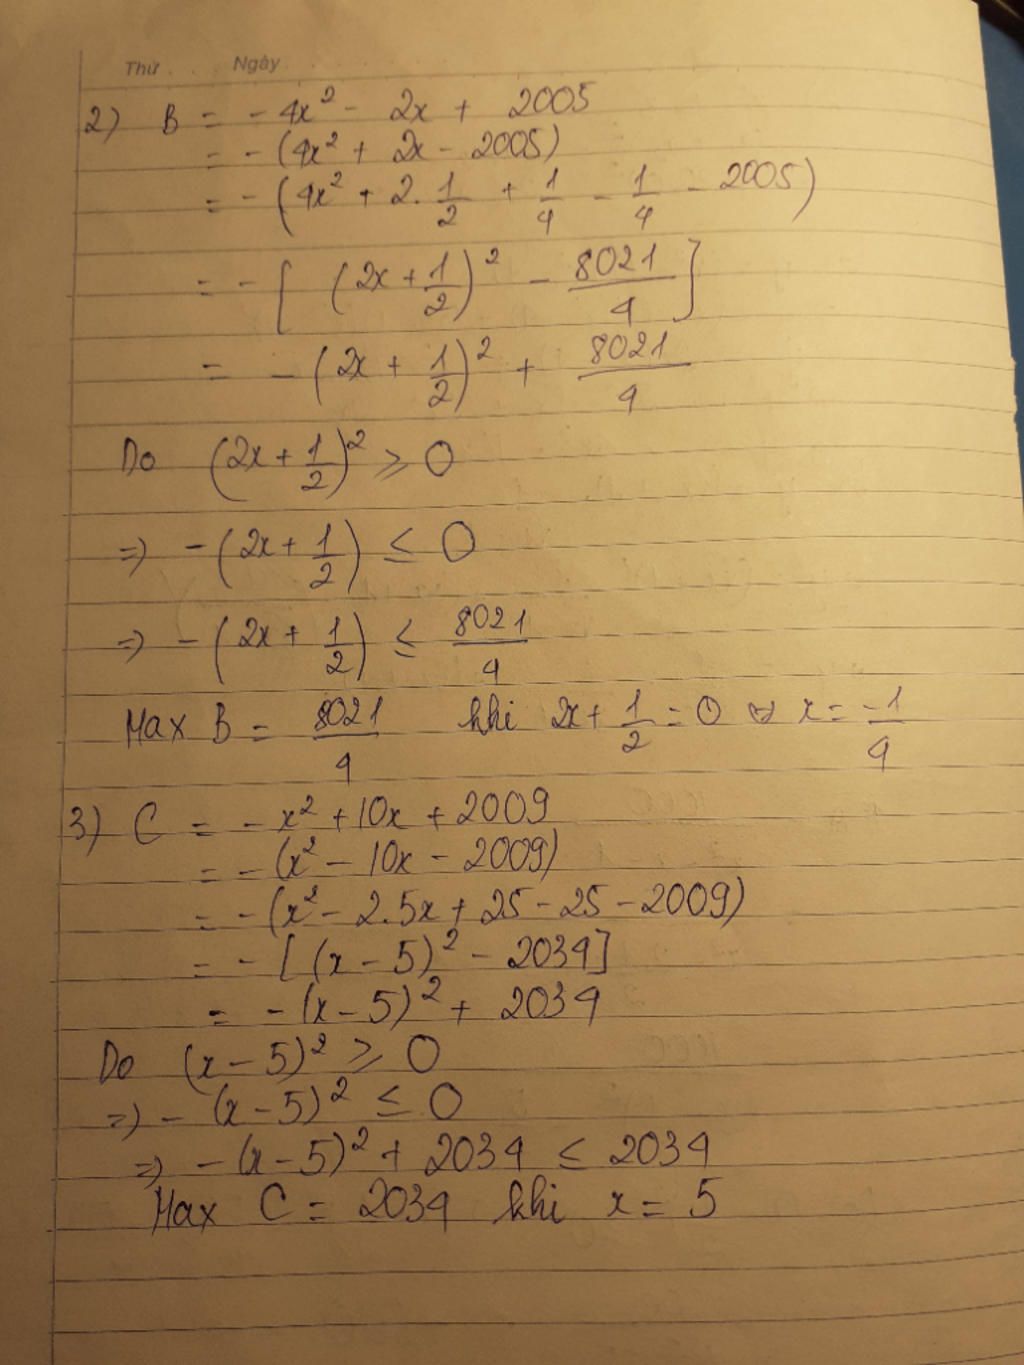 Thứ Ngày
2) B = - 4x² - 2x + 2005
= - (4x² + 2x - 2005)
= - (4x² + 2.1/2 + 1/4 - 1/4 - 2005)
= - [ (2x + 1/2)² - 8021/4 ]
= - (2x + 1/2)² + 8021/4
Do (2x + 1/2)² ≥ 0
=> - (2x + 1/2) ≤ 0
=> - (2x + 1/2) ≤ 8021/4
Max B = 8021/4 khi 2x + 1/2 = 0 ⇔ x = -1/4
3) C = - x² + 10x + 2009
= - (x² - 10x - 2009)
= - (x² - 2.5x + 25 - 25 - 2009)
= - [ (x - 5)² - 2034]
= - (x - 5)² + 2034
Do (x - 5)² ≥ 0
=> - (x - 5)² ≤ 0
=> - (x - 5)² + 2034 ≤ 2034
Max C = 2034 khi x = 5